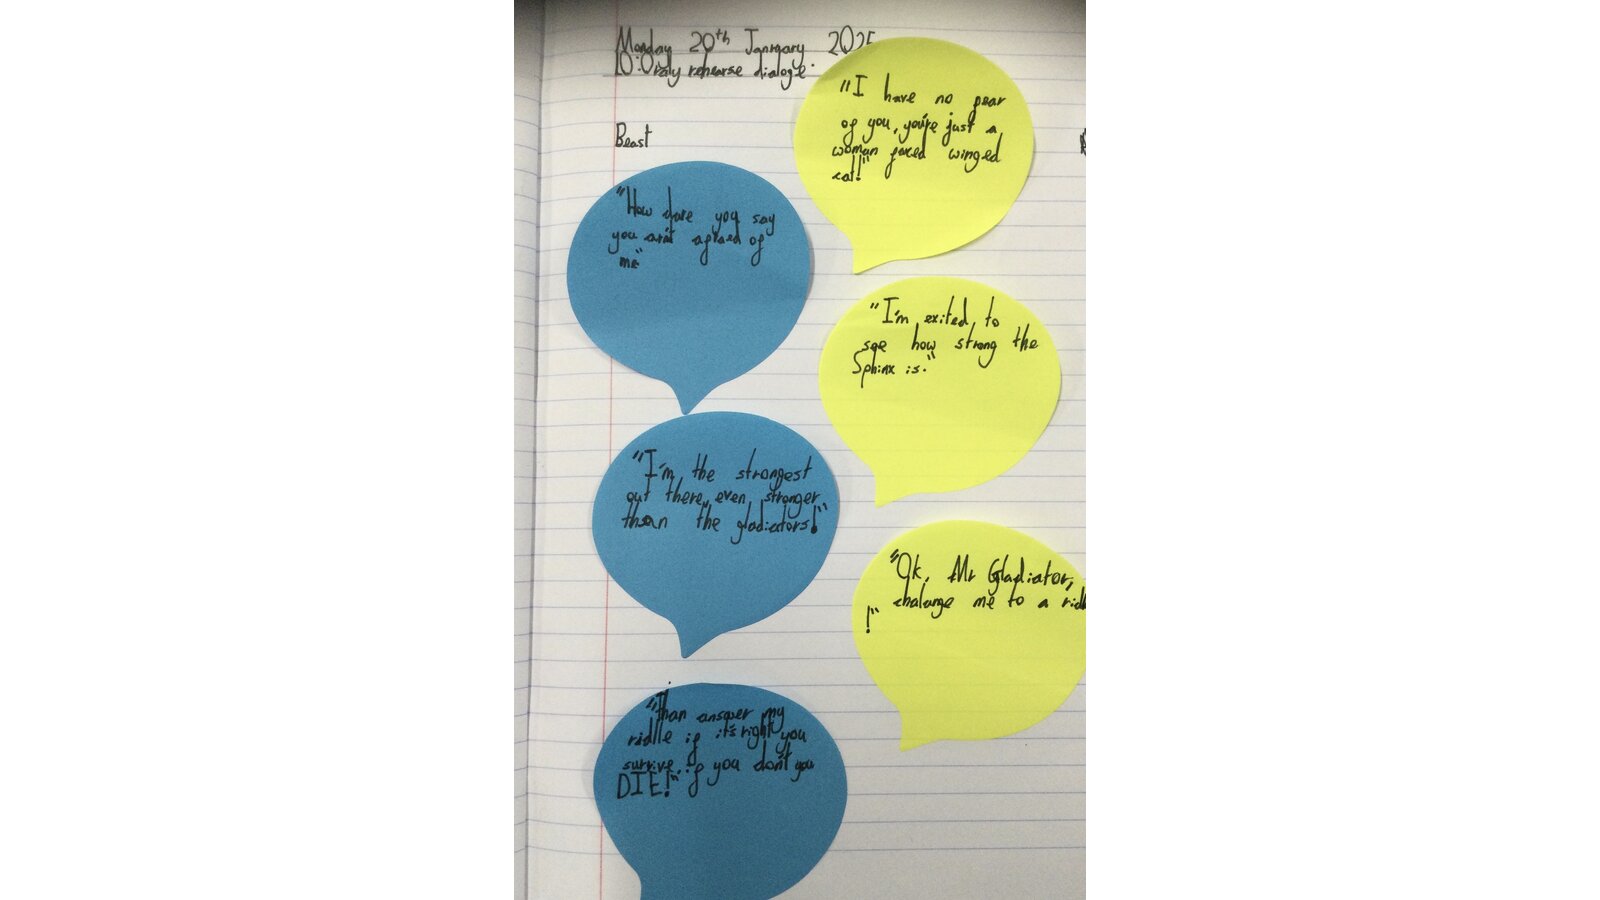 Monday 20th January 2025
LO: Oraly rehearse dialoge.
Beast
"I have no fear
of you, you're just a
woman faced winged
cat!"
"How dare you say
you arn't afraed of
me"
"I'm exited to
see how strong the
Sphinx is."
"I'm the strongest
out there, even stronger
than the gladiators!"
"Ok, Mr Gladiator,
chalange me to a
!"
"Than answer my
riddle if it's right you
survive.. if you don't you
DIE!"